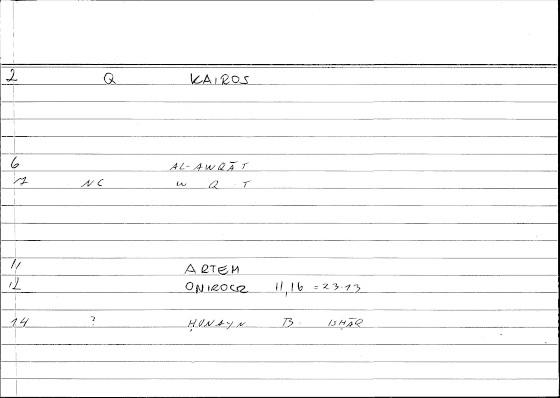 2 Q KAIROS
6 AL-AWQĀT
7 NC W Q T
11 ARTEM
12 ONIROCR 11,16 = 23.13
14 ? ḤUNAYN B. ISḤĀQ